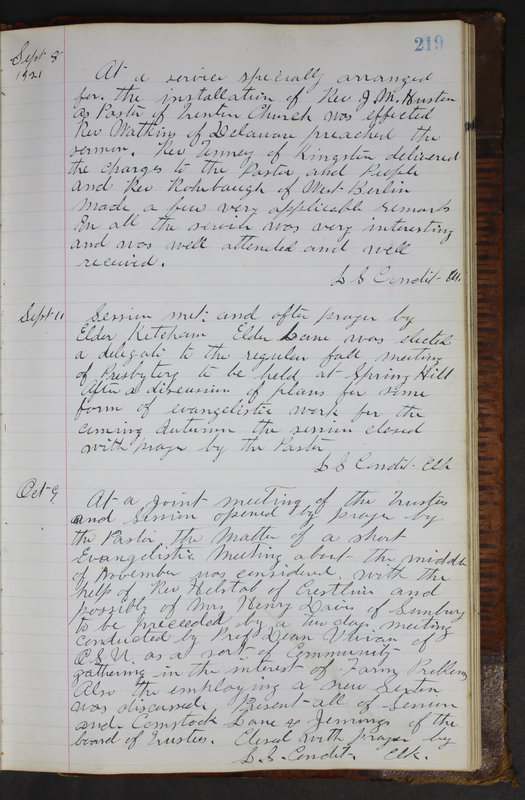 219
Sept 8
1921
At a service specially arranged
for the installation of Rev J. M. Huston
as Pastor of Trenton Church was effected
Rev Watkins of Delaware preached the
sermon. Rev Tenney of Kingston delivered
the charges to the Pastor and People
and Rev Rohrbaugh of West Berlin
made a few very applicable remarks
In all the service was very interesting
and was well attended and well
received.
L S Condit Clk.
Sept 11
Session met: and after prayer by
Elder Ketcham Elder Lane was elected
a delegate to the regular fall meeting
of Presbytery to be held at Spring Hill
After a discussion of plans for some
form of evangelistic work for the
coming Autumn the session closed
with prayer by the Pastor
L S Condit Clk
Oct 9
At a joint meeting of the Trustees
and Session opened by prayer by
the Pastor the matter of a short
Evangelistic Meeting about the middle
of November was considered with the
help of Rev Helstab of Crestline and
possibly of Mrs Henry Davis of Sunbury
to be preceeded by a two days meeting
conducted by Prof Dean Vivian of
O.S.U. as a sort of Community
gathering in the interest of Farm Problems
Also the employing a new Sexton
was discussed. Present all of Session
and Comstock Lane & Jennings of the
board of Trustees. Closed with prayer by
L. S. Condit. Clk.